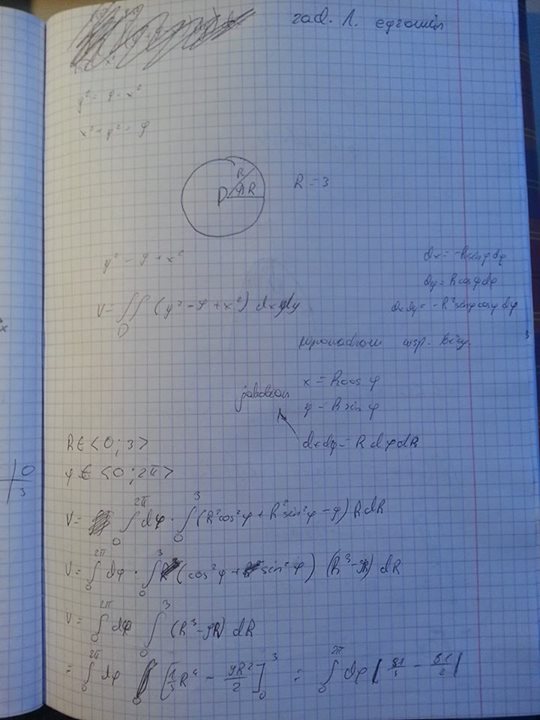 zad. 1. egzamin
y² = 9 - x²
x² + y² = 9
R
D φ R
R = 3
y² - 9 + x²
dx = -R sinφ dφ
dy = R cosφ dφ
V = ∬ (y² - 9 + x²) dxdy
D
dxdy = -R² sinφ cosφ dφ
wprowadzam wsp. bieg.
x = R cos φ
jakobian
y = R sin φ
dxdy = R dφ dR
R ∈ <0; 3>
φ ∈ <0; 2π>
V = ∫₀^2π dφ · ∫₀^3 (R²cos²φ + R²sin²φ - 9) R dR
V = ∫₀^2π dφ · ∫₀^3 (cos²φ + sin²φ) (R³ - 9R) dR
V = ∫₀^2π dφ ∫₀^3 (R³ - 9R) dR
= ∫₀^2π dφ [ R⁴ - 9R²/2 ]₀^3 = ∫₀^2π dφ | 81 - 81/2 |